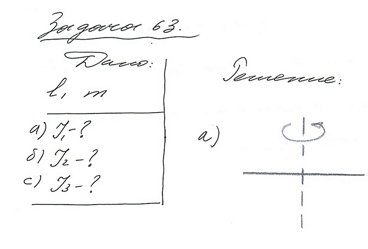 Задача 63.
Дано:
l, m
а) J₁-?
б) J₂-?
с) J₃-?
Решение:
а)